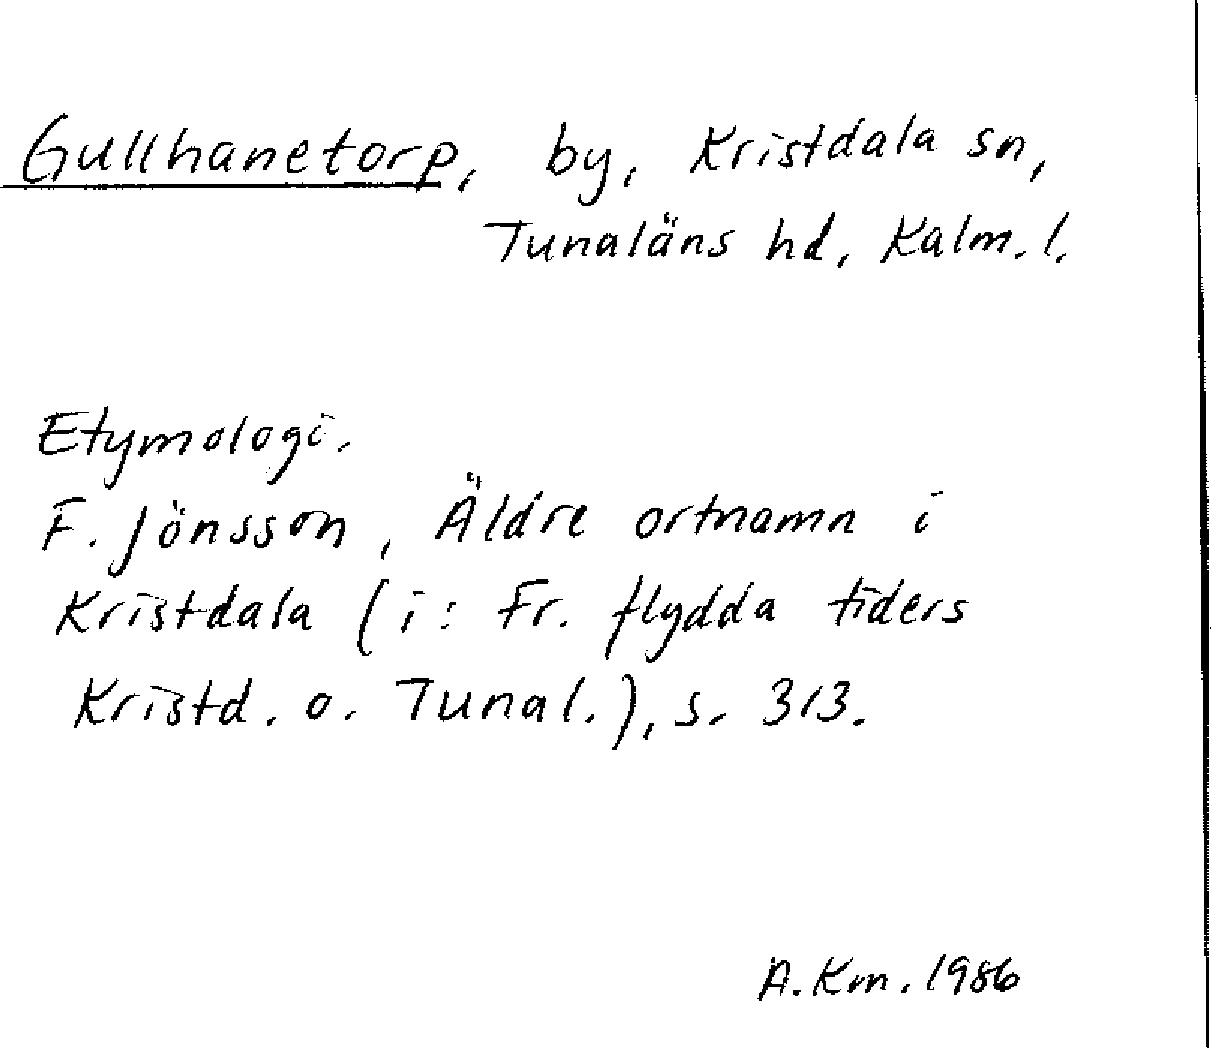 Gullhanetorp, by, Kristdala sn,
Tunaläns hd, Kalm. l.
Etymologi.
F. Jönsson, Äldre ortnamn i
Kristdala (i: Fr. flydda tiders
Kristd. o. Tunal.), s. 313.
A. Km. 1986